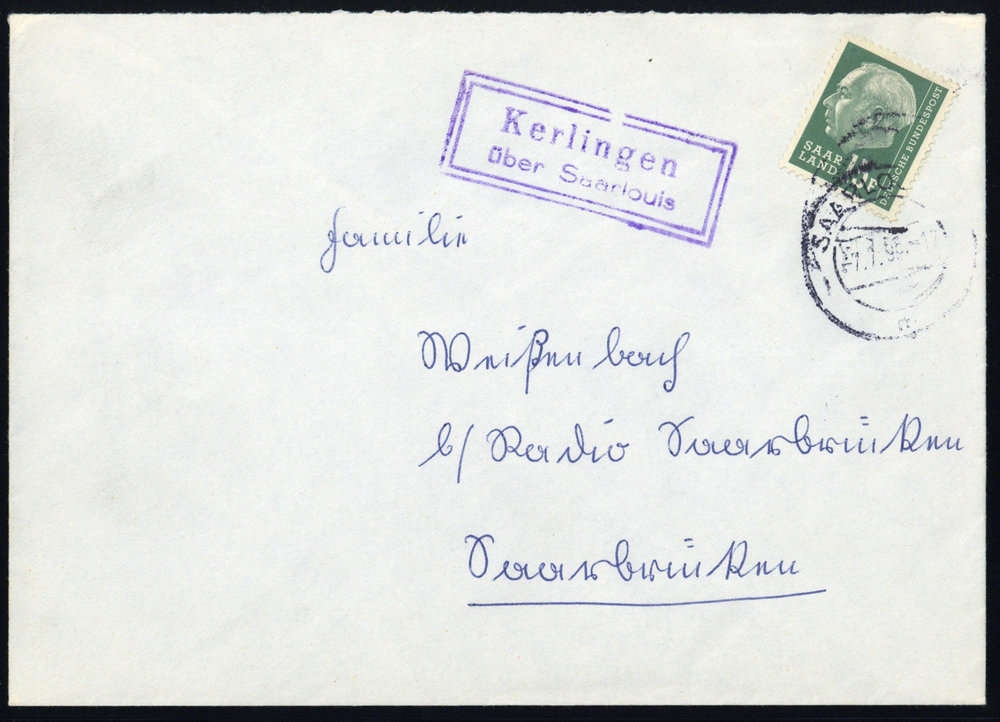 Kerlingen
über Saarlouis
SAAR
LAND
DEUTSCHE BUNDESPOST
Familie
Weißenbach
b/ Radio Saarbrücken
Saarbrücken